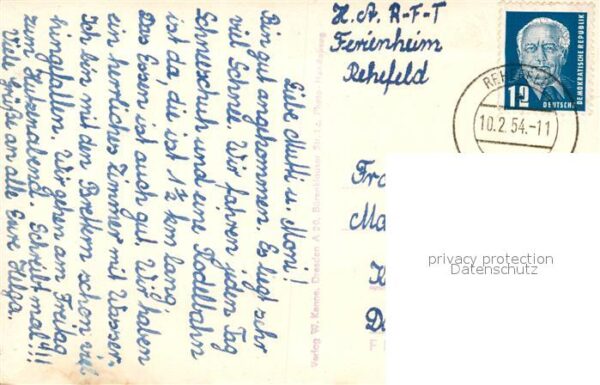 Liebe Mutti u. Moni!
Bin gut angekommen. Es liegt sehr
viel Schnee. Wir fahren jeden Tag
Schneeschuh und eine Rodelbahn
ist da, die ist 1½ km lang.
Das Essen ist auch gut. Wir haben
ein herrliches Zimmer mit Wasser.
Ich bin mit den Brettern schon viel
hingefallen. Wir gehen am Freitag
zum Hutzenabend. Schreibt mal!!!
Viele Grüße an alle Eure Helga.
H.A. R-F-T
Ferienheim
Rehefeld
DEUTSCHE DEMOKRATISCHE REPUBLIK
12
10.2.54.-11
Verlag W. Kenne, Dresden A 20,
privacy protection
Datenschutz